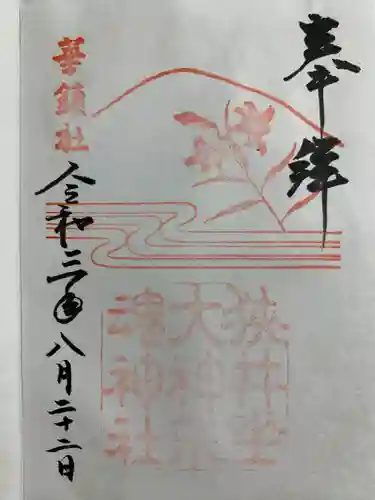 奉拝
華鎮社
狹井坐
大神荒
魂神社
令和三年八月二十二日